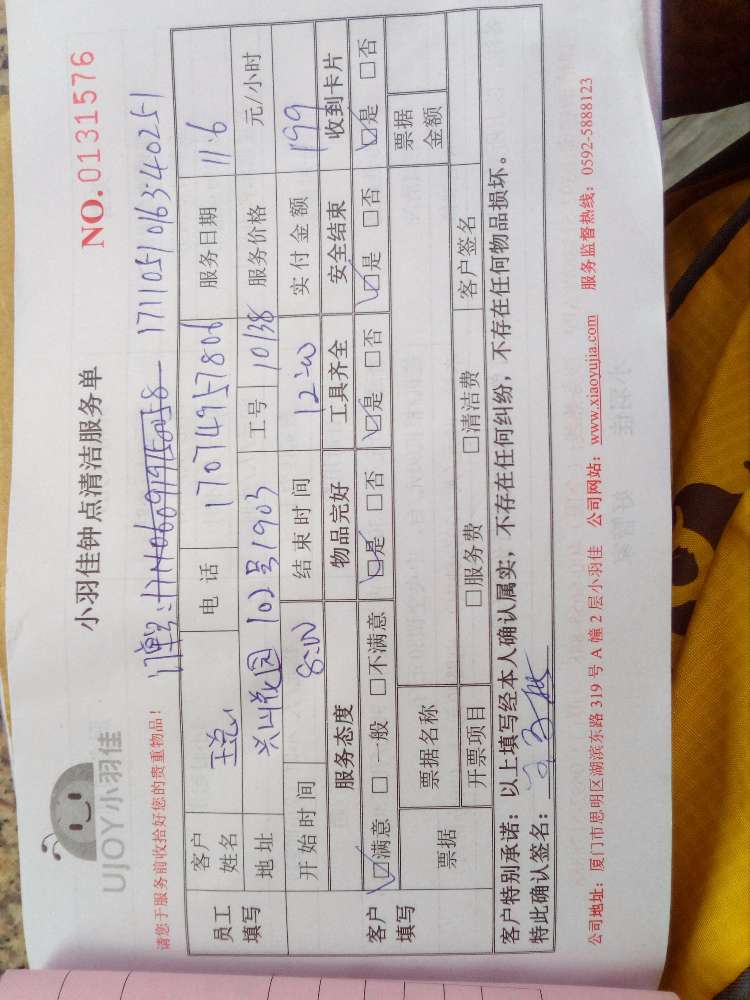 UJOY小羽佳
小羽佳钟点清洁服务单
NO.0131576
请您于服务前收拾好您的贵重物品！
订单号: 171105101634 40251
员工填写 客户姓名 电话 17074957806 服务日期 11.6
地址 兴山花园102号1903 工号 10138 服务价格 元/小时
开始时间 8:00 结束时间 12:00 实付金额 199
客户填写 服务态度 物品完好 工具齐全 安全结束 收到卡片
☑满意 □一般 □不满意 ☑是 □否 ☑是 □否 ☑是 □否 ☑是 □否
票据 票据名称 票据金额
开票项目 □服务费 □清洁费 客户签名
客户特别承诺：以上填写经本人确认属实，不存在任何纠纷，不存在任何物品损坏。
特此确认签名：
公司地址：厦门市思明区湖滨东路 319 号 A 幢 2 层小羽佳 公司网站：www.xiaoyujia.com 服务监督热线：0592-5888123